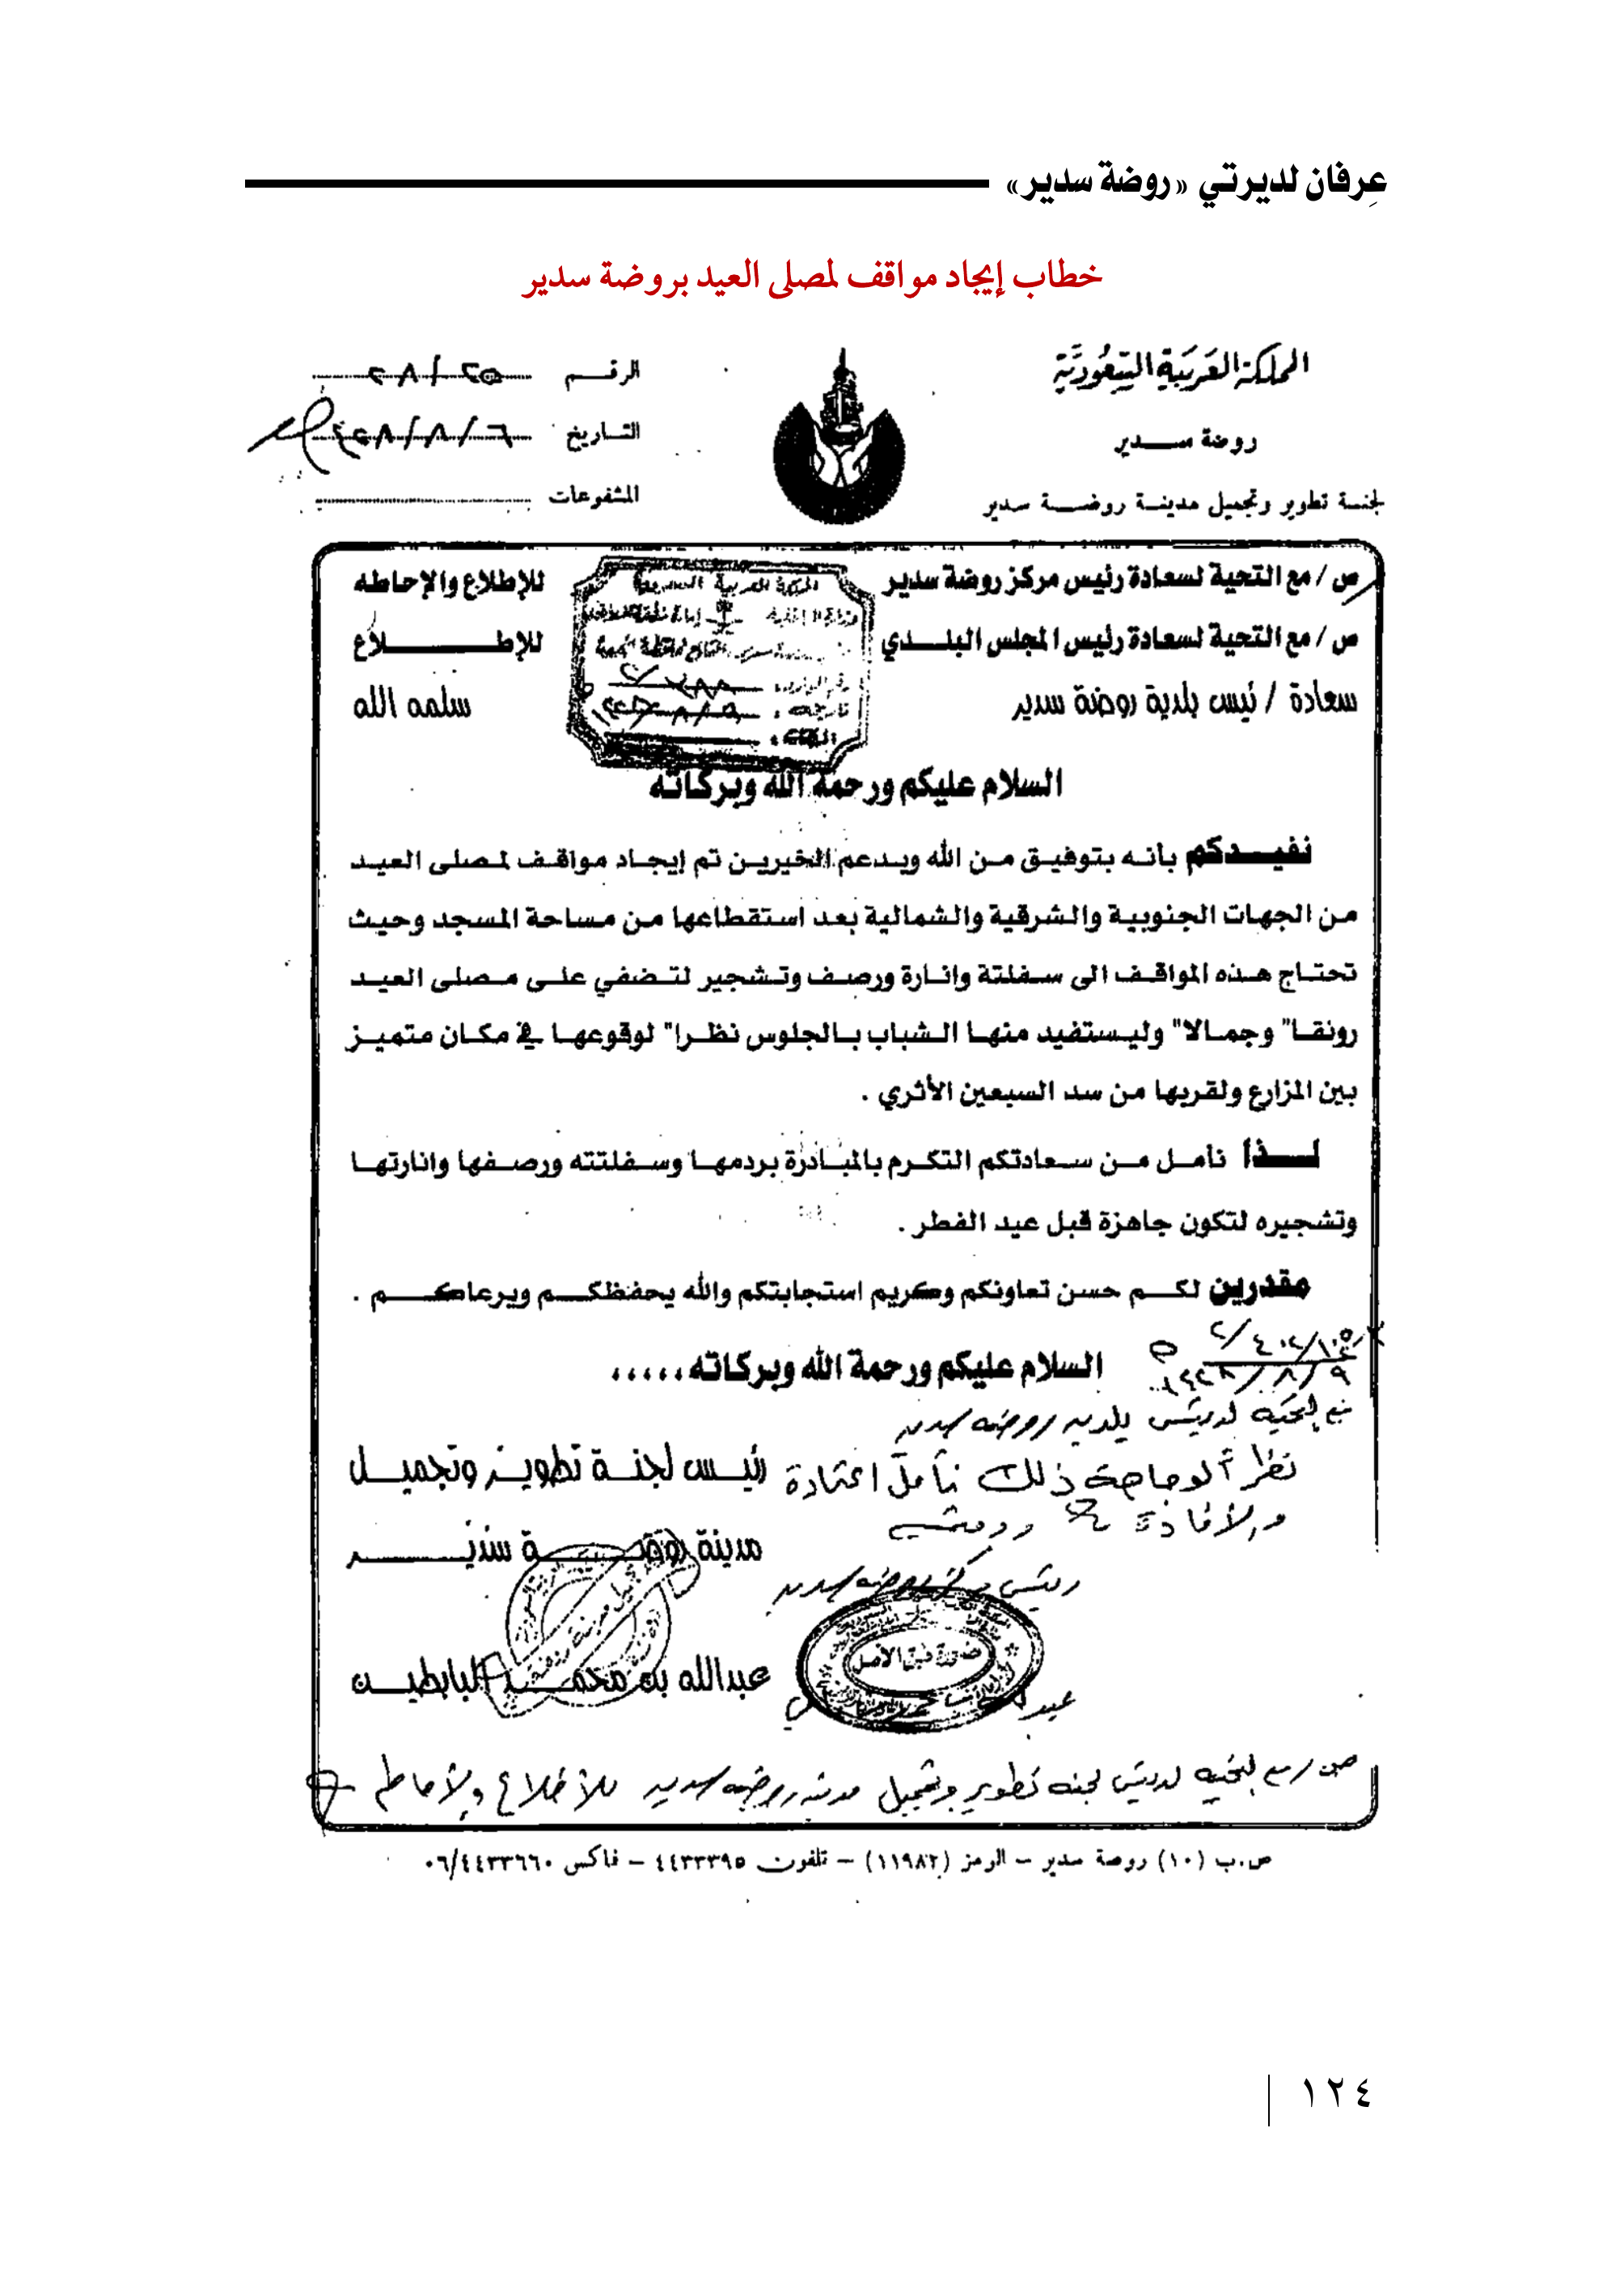 عِرفان لديرتي «روضة سدير»
خطاب إيجاد مواقف لمصلى العيد بروضة سدير
المملكة العربية السعودية
روضة سدير
لجنة تطوير وتجميل مدينة روضة سدير
الرقم ٢٨/٢٥
التاريخ ٦/٨/١٤٢٨هـ
المشفوعات
ص/مع التحية لسعادة رئيس مركز روضة سدير للإطلاع والإحاطه
ص/مع التحية لسعادة رئيس المجلس البلدي للإطلاع
سعادة / رئيس بلدية روضة سدير سلمه الله
السلام عليكم ورحمة الله وبركاته
نفيدكم بانه بتوفيق من الله وبدعم الخيرين تم إيجاد مواقف لمصلى العيد
من الجهات الجنوبية والشرقية والشمالية بعد استقطاعها من مساحة المسجد وحيث
تحتاج هذه المواقف الى سفلتة وانارة ورصف وتشجير لتضفي على مصلى العيد
رونقا" وجمالا" وليستفيد منها الشباب بالجلوس نظرا" لوقوعها في مكان متميز
بين المزارع ولقربها من سد السبعين الأثري .
لذا نامل من سعادتكم التكرم بالمبادرة بردمها وسفلتته ورصفها وانارتها
وتشجيره لتكون جاهزة قبل عيد الفطر .
مقدرين لكم حسن تعاونكم وكريم استجابتكم والله يحفظكم ويرعاكم .
السلام عليكم ورحمة الله وبركاته،،،،،
مع التحية لرئيس بلدية روضه سدير
نظراً لوجاهة ذلك نأمل اعتمادة
والأفادة
رئيس مركز روضه سدير
رئيس لجنة تطوير وتجميل
مدينة روضة سدير
صورة طبق الأصل
عبدالله بن محمد البابطين
ص مع التحيه لرئيس لجنه تطوير وتجميل مدينه روضه سدير للأطلاع والأحاطه
ص.ب (١٠) روضة سدير – الرمز (١١٩٨٢) – تلفون ٤٤٣٣٣٩٥ – فاكس ٠٦/٤٤٣٣٦٦٠
١٢٤